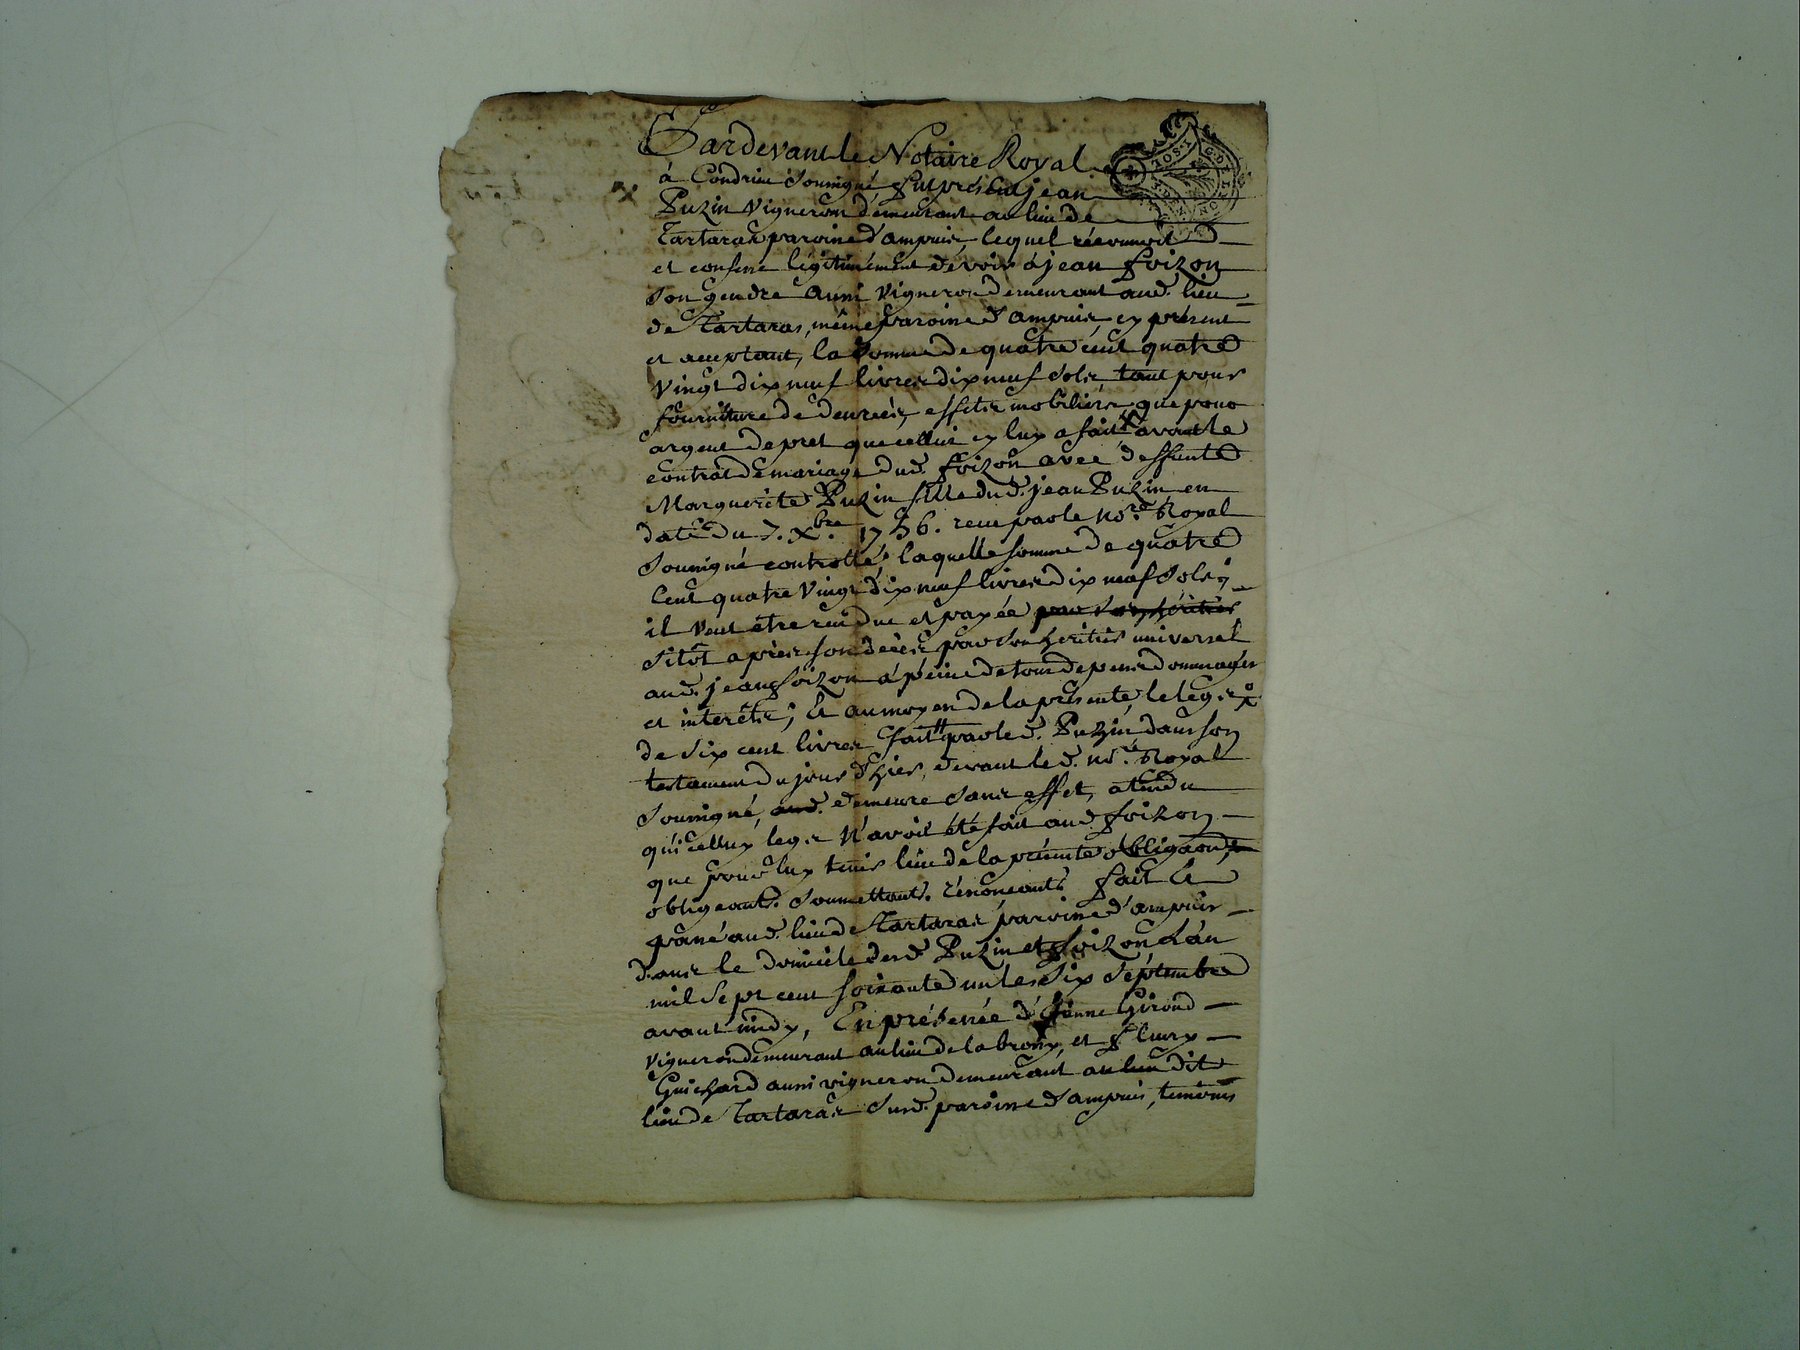 Pardevant le Notaire Royal
à Condrieu soussigné fut présent jean
Puzin vigneron demeurant au lieu de
Tartaras paroisse d'ampuis, lequel réconnoit
et confesse légitimément dévoir à jean foizon
son gendre aussi vigneron demeurant aud. lieu
de Tartaras, même paroisse d'ampuis, cy présent
et acceptant, la somme de quatre cent quatre
vingt dix neuf livres dix neuf sols tant pour
fourniture de denrées, effets mobiliers que pour
argent de pret que cellui cy luy a fait avant le
contrat de mariage dud. foizon avec deffunte
Marguerite Puzin fille dud. jean Puzin, en
date du 7. Xbre. 1756. reçu par le nore. Royal
soussigné controllé, laquelle somme de quatre
Cent quatre vingt dix neuf livres dix neuf sols,
il veut être rendue et payée par son héritier
sitôt après son décès par son héritier universel
aud. jean foizon à peine de tous depens dommages
et interêts; Et au moyen de la présente, le legs
de six cent livres fait par led. Puzin dans son
testament du jour d'hier, devant led. nore. Royal
soussigné, aud. demeure sans effet, atendu
qu'icelluy legs n'avoit été fait aud foizon
que pour luy tenir lieu de la présente obligaon,
obligeants. soumettants. rénonceants. fait et
passé aud. lieu de Tartaras paroisse d'ampuis
dans le domicile desd Puzin et foizon L'an
mil sept cent soixante un le six séptembre
avant midy, En présence d'étienne Girond
vigneron demeurant au lieu de la brosy, et fleury
Guichard aussi vigneron demeurant au lieu dit
lieu de Tartaras susd. paroisse d'ampuis, témoins